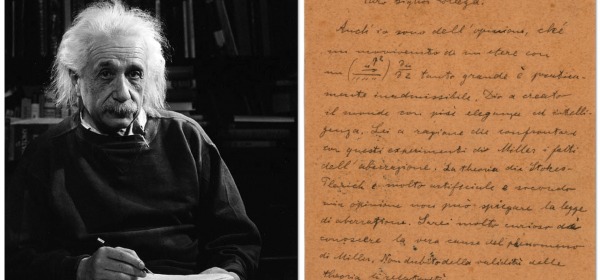 Caro Signor
Anch'io sono dell'opinione, ché
un movimento di un etere con
un tanto grande è pratica-
mente inadmissibile. Dio a creato
il mondo con più eleganza ed intelli-
genza. Lei a ragione che confrontare
con questi experimenti di Miller i fatti
dell'aberragione. La theoria di Stokes-
Planck è molto artificiale e secondo
mia opinione non può spiegare la legge
di aberratione. Sarei molto curioso di
conoscere la vera causa del phenomeno
di Miller. Non dubito della validità delle
theoria di relatività